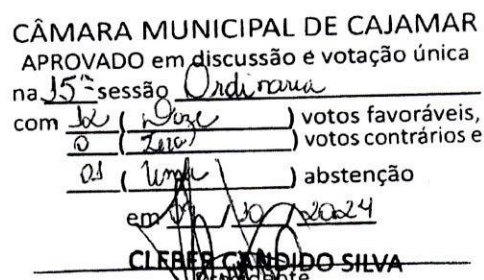 CÂMARA MUNICIPAL DE CAJAMAR
APROVADO em discussão e votação única
na 15ª sessão Ordinaria
com 12 ( Doze ) votos favoráveis,
0 ( Zero ) votos contrários e
01 ( Uma ) abstenção
em / 10 / 2024
CLEBER CANDIDO SILVA
Presidente